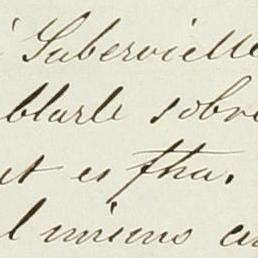 Subervielle
blarle sobre
es fha.
l mismo